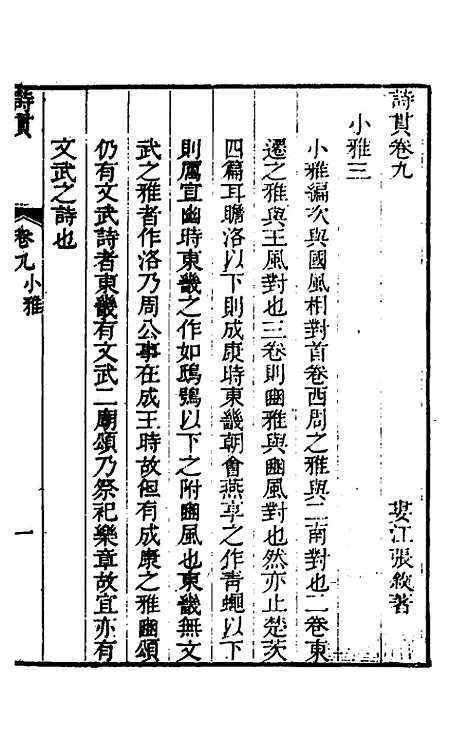 詩貫卷九
婁江張敘著
小雅三
小雅編次與國風相對首卷西周之雅與二南對也二卷東
遷之雅與王風對也三卷則豳雅與豳風對也然亦止楚茨
四篇耳瞻洛以下則成康時東畿朝會燕享之作青蠅以下
則厲宣幽時東畿之作如鴟鴞以下之附豳風也東畿無文
武之雅者作洛乃周公事在成王時故但有成康之雅豳頌
仍有文武詩者東畿有文武二廟頌乃祭祀樂章故宜亦有
文武之詩也
詩貫
卷九小雅
一